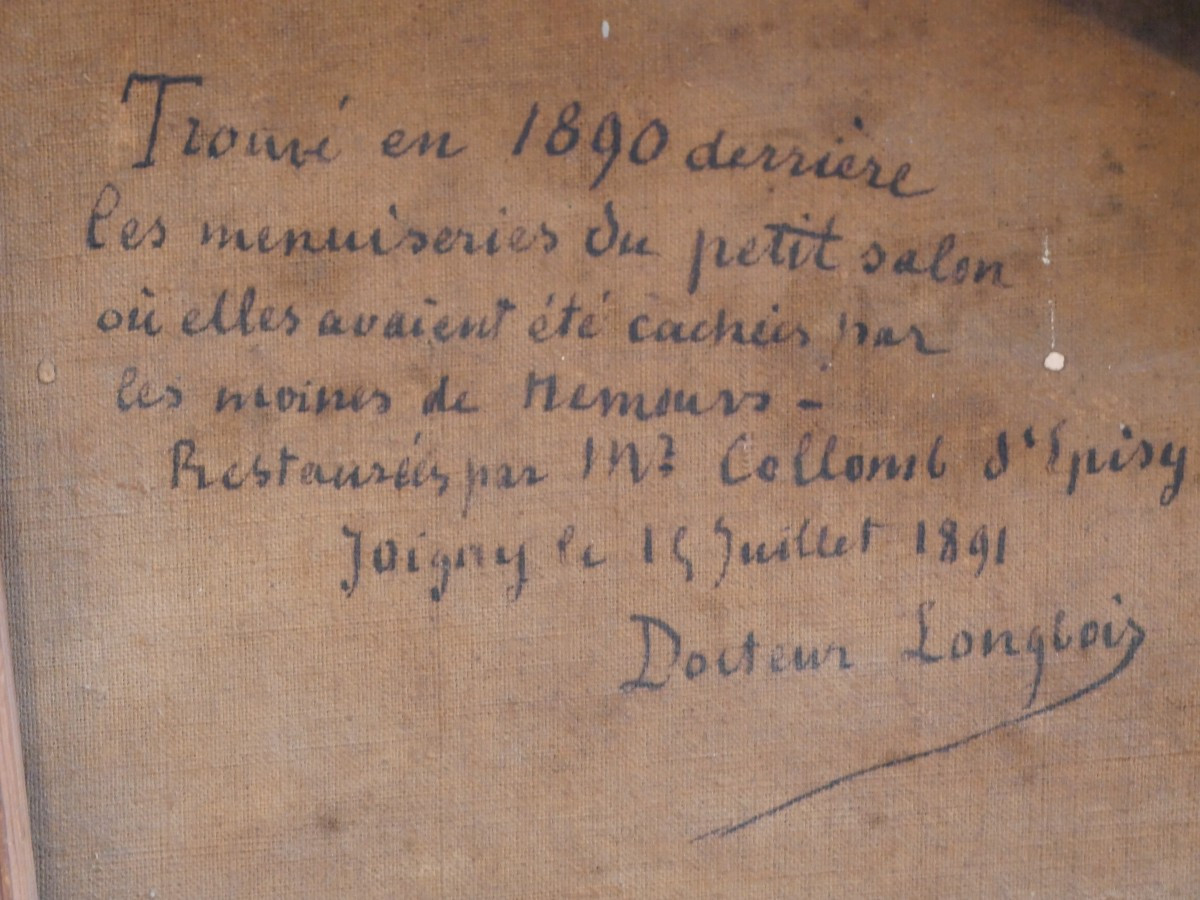 Trouvé en 1890 derrière
les menuiseries du petit salon
où elles avaient été cachées par
les moines de Nemours -
Restaurées par Mr Collomb d'Episy
Joigny le 15 Juillet 1891
Docteur Longbois